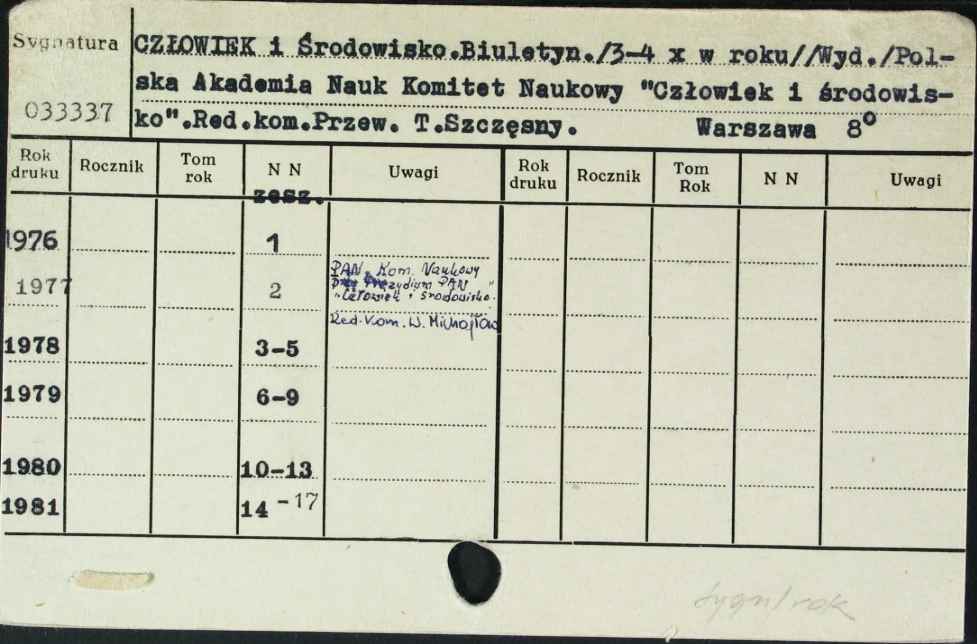 Sygnatura
CZŁOWIEK i Środowisko.Biuletyn./3-4 x w roku//Wyd./Pol-
ska Akademia Nauk Komitet Naukowy "Człowiek i środowis-
033337
ko".Red.kom.Przew. T.Szczęsny. Warszawa 8°
Rok druku Rocznik Tom rok N N Uwagi Rok druku Rocznik Tom Rok N N Uwagi
zesz.
1976 1
PAN. Kom. Naukowy
1977 2 Prezydium PAN "
"Człowiek i środowisko.
Red. Kom. W. Michajłow
1978 3-5
1979 6-9
1980 10-13
1981 14 -17